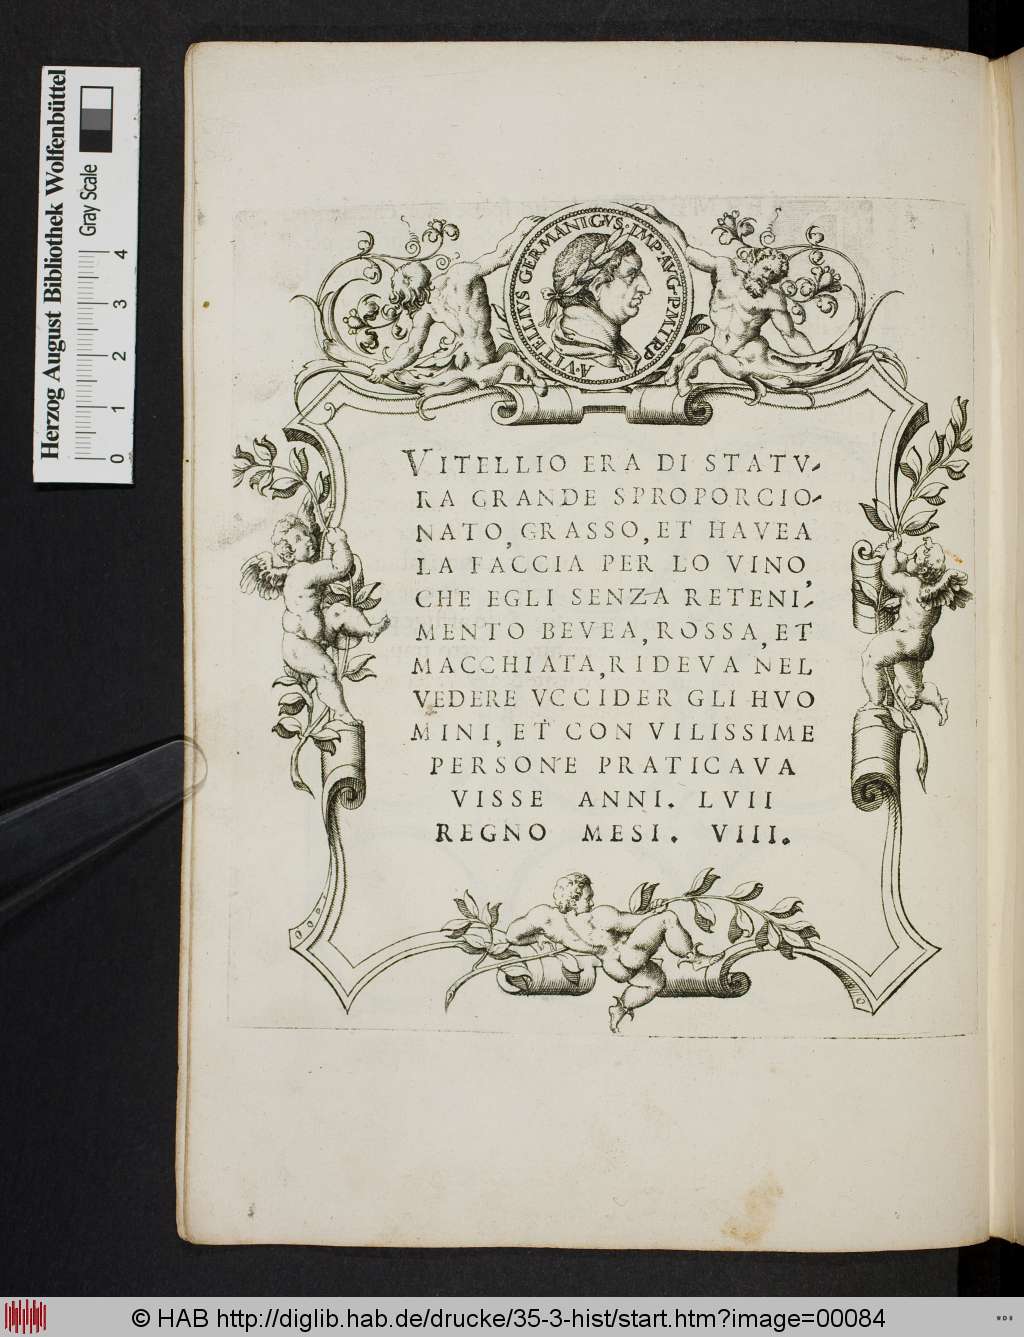 Herzog August Bibliothek Wolfenbüttel
Gray Scale
0 1 2 3 4
A·VITELLIVS GERMANICVS·IMP·AVG·P·M·TRP
VITELLIO ERA DI STATV-
RA GRANDE SPROPORCIO-
NATO, GRASSO, ET HAVEA
LA FACCIA PER LO VINO,
CHE EGLI SENZA RETENI-
MENTO BEVEA, ROSSA, ET
MACCHIATA, RIDEVA NEL
VEDERE VCCIDER GLI HVO
MINI, ET CON VILISSIME
PERSONE PRATICAVA
VISSE ANNI. LVII
REGNO MESI. VIII.
© HAB http://diglib.hab.de/drucke/35-3-hist/start.htm?image=00084